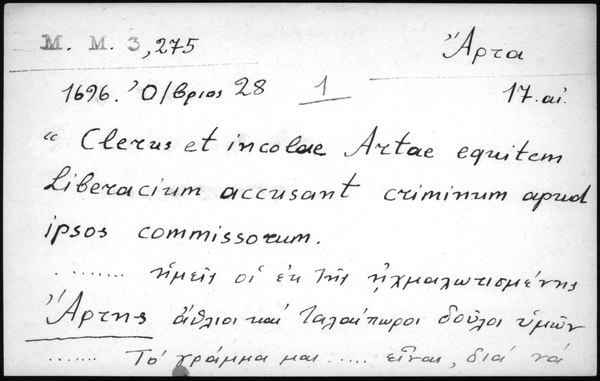 M. M. 3,275 Ἄρτα
1696. Ὀ/βριος 28 1 17. αἰ.
“ Clerus et incolae Artae equitem
Liberacium accusant criminum apud
ipsos commissorum.
. ....... ἡμεῖς οἱ ἐκ τῆς ᾐχμαλωτισμένης
Ἄρτης ἄθλιοι καὶ ταλαίπωροι δοῦλοι ὑμῶν
....... Τὸ γράμμα μας ..... εἶναι, διὰ νὰ